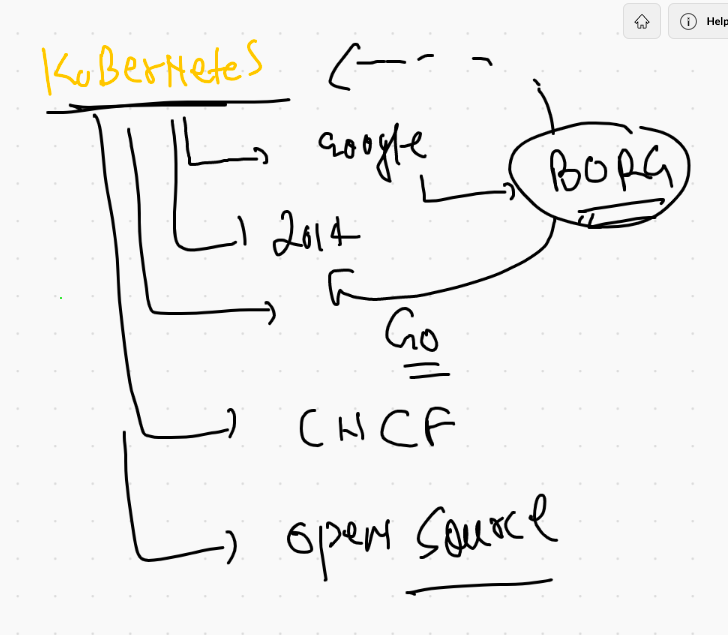 Help
KuBerNeteS
Google
BORG
2014
Go
CNCF
open Source